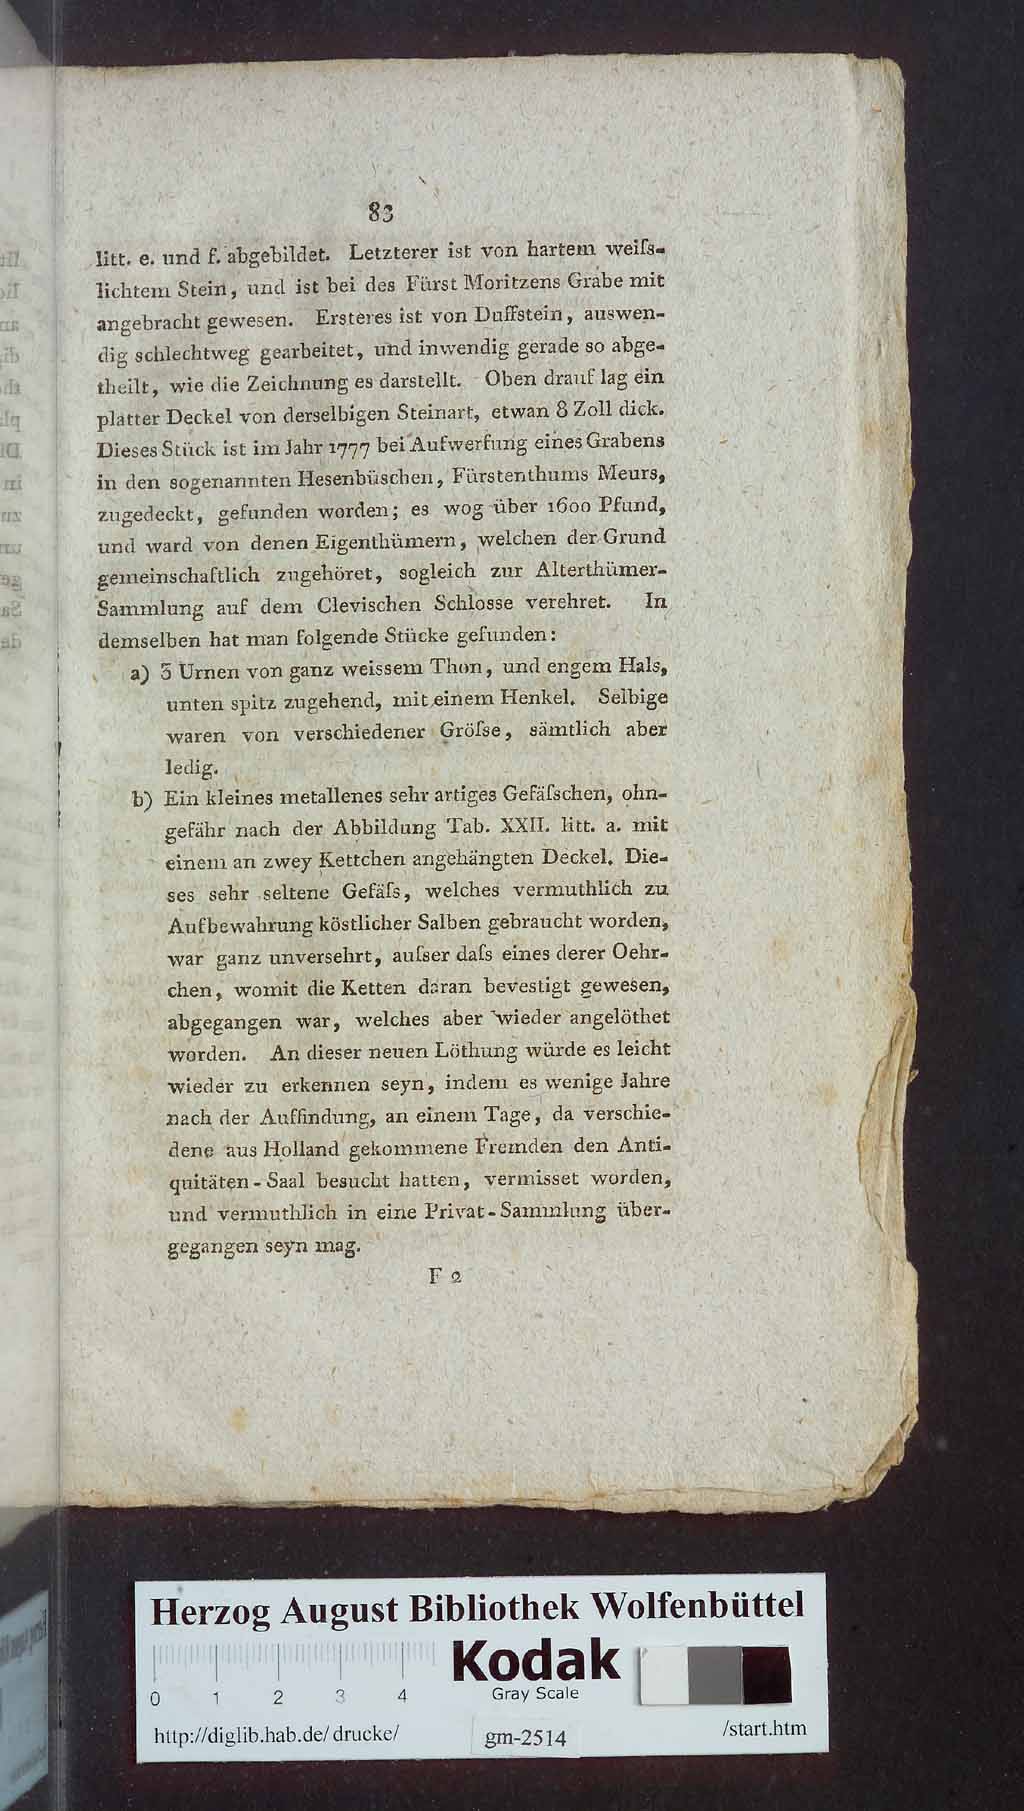 83
litt. e. und f. abgebildet. Letzterer ist von hartem weiſs-
lichtem Stein, und ist bei des Fürst Moritzens Grabe mit
angebracht gewesen. Ersteres ist von Duffstein, auswen-
dig schlechtweg gearbeitet, und inwendig gerade so abge-
theilt, wie die Zeichnung es darstellt. Oben drauf lag ein
platter Deckel von derselbigen Steinart, etwan 8 Zoll dick.
Dieses Stück ist im Jahr 1777 bei Aufwerfung eines Grabens
in den sogenannten Hesenbüschen, Fürstenthums Meurs,
zugedeckt, gefunden worden; es wog über 1600 Pfund,
und ward von denen Eigenthümern, welchen der Grund
gemeinschaftlich zugehöret, sogleich zur Alterthümer-
Sammlung auf dem Clevischen Schlosse verehret. In
demselben hat man folgende Stücke gefunden:
a) 3 Urnen von ganz weissem Thon, und engem Hals,
unten spitz zugehend, mit einem Henkel. Selbige
waren von verschiedener Gröſse, sämtlich aber
ledig.
b) Ein kleines metallenes sehr artiges Gefäſschen, ohn-
gefähr nach der Abbildung Tab. XXII. litt. a. mit
einem an zwey Kettchen angehängten Deckel. Die-
ses sehr seltene Gefäſs, welches vermuthlich zu
Aufbewahrung köstlicher Salben gebraucht worden,
war ganz unversehrt, auſser daſs eines derer Oehr-
chen, womit die Ketten daran bevestigt gewesen,
abgegangen war, welches aber wieder angelöthet
worden. An dieser neuen Löthung würde es leicht
wieder zu erkennen seyn, indem es wenige Jahre
nach der Auffindung, an einem Tage, da verschie-
dene aus Holland gekommene Fremden den Anti-
quitäten-Saal besucht hatten, vermisset worden,
und vermuthlich in eine Privat-Sammlung über-
gegangen seyn mag.
F 2
Herzog August Bibliothek Wolfenbüttel
Kodak
Gray Scale
0 1 2 3 4
http://diglib.hab.de/drucke/ gm-2514 /start.htm